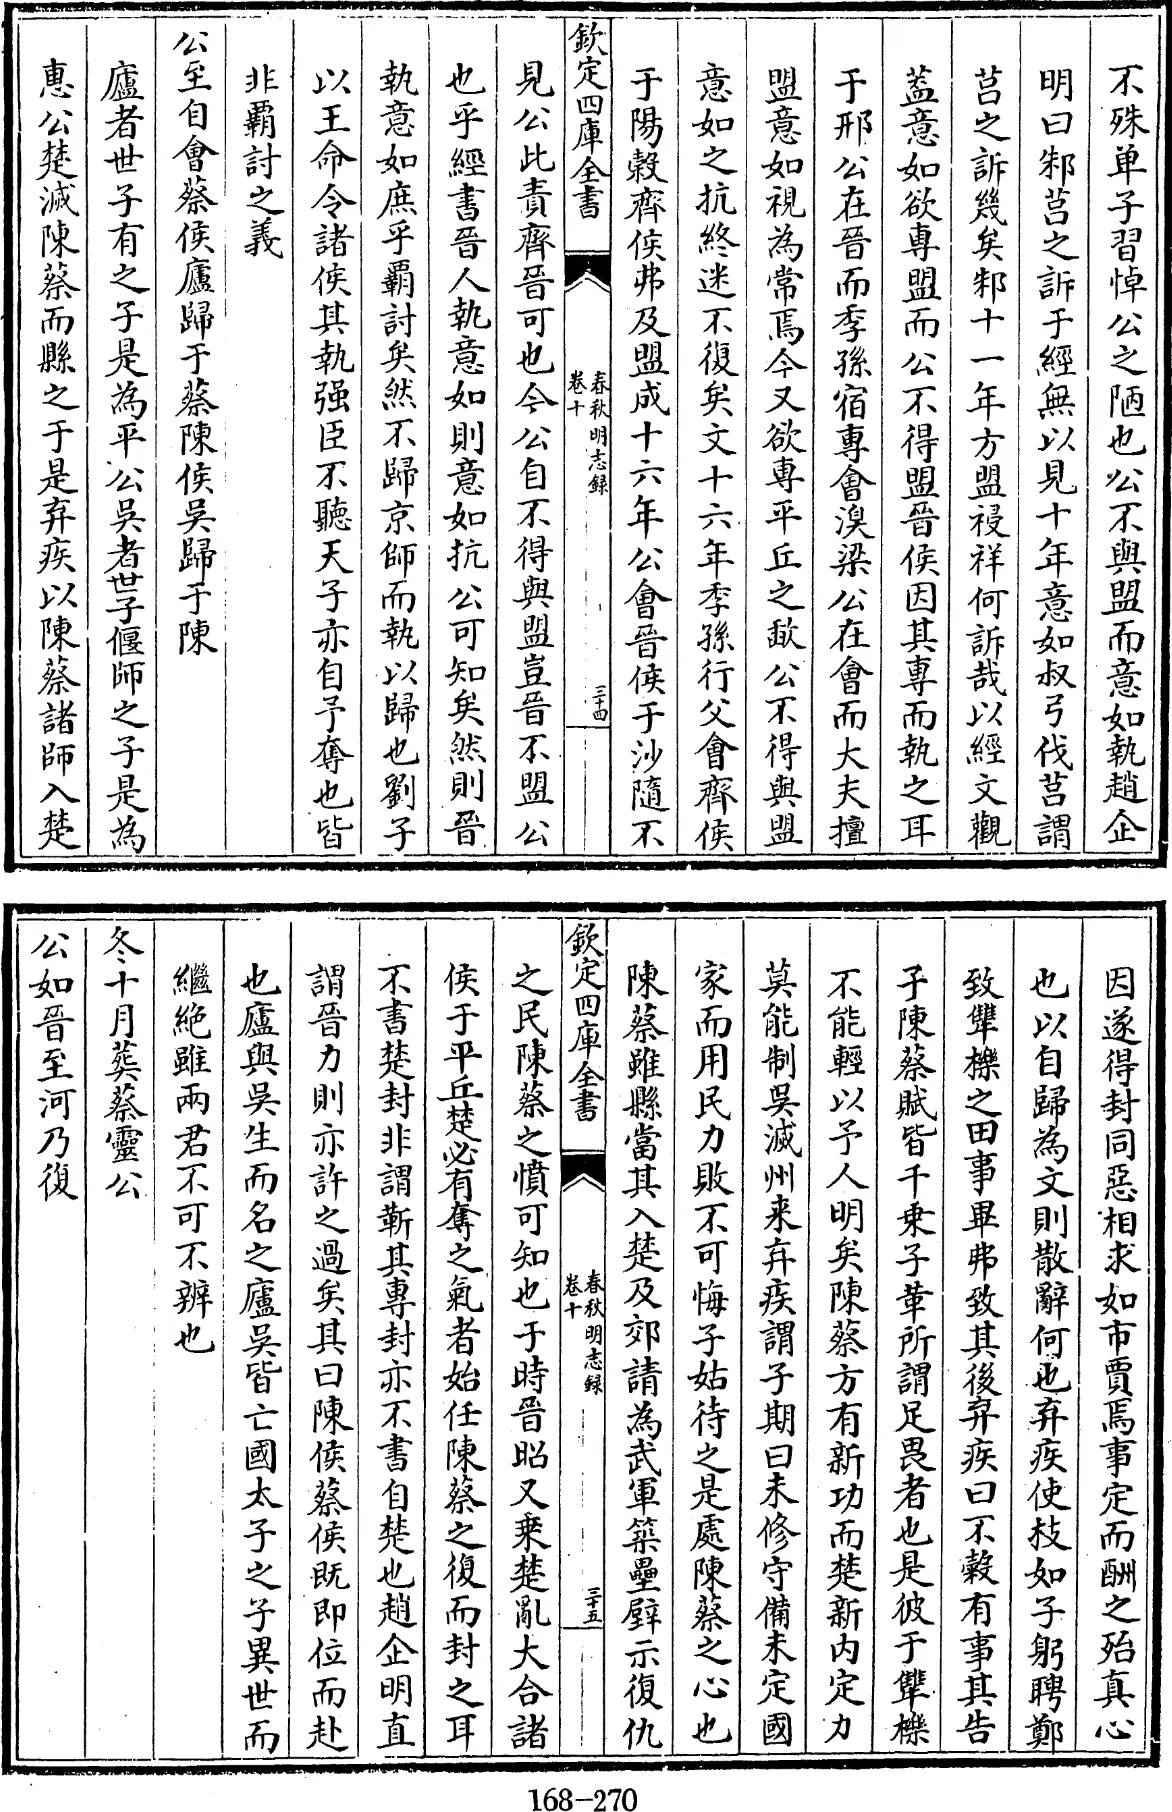 不殊单子習悼公之陋也公不與盟而意如執趙企
明曰邾莒之訴于經無以見十年意如叔弓伐莒謂
莒之訴幾矣邾十一年方盟祲祥何訴哉以經文觀
蓋意如欲専盟而公不得盟晉侯因其専而執之耳
于邢公在晉而季孫宿専會溴梁公在會而大夫擅
盟意如視為常焉今又欲専平丘之歃公不得與盟
意如之抗終迷不復矣文十六年季孫行父會齊侯
于陽穀齊侯弗及盟成十六年公會晉侯于沙隨不
欽定四庫全書
春秋明志録
卷十
三十四
見公此責齊晉可也今公自不得與盟豈晉不盟公
也乎經書晉人執意如則意如抗公可知矣然則晉
執意如庶乎霸討矣然不歸京師而執以歸也劉子
以王命令諸侯其執强臣不聽天子亦自予奪也皆
非霸討之義
公至自會蔡侯廬歸于蔡陳侯吳歸于陳
廬者世子有之子是為平公吳者世子偃師之子是為
惠公楚滅陳蔡而縣之于是弃疾以陳蔡諸師入楚
因遂得封同惡相求如市賈焉事定而酬之殆真心
也以自歸為文則散辭何也弃疾使枝如子躬聘鄭
致犫櫟之田事畢弗致其後弃疾曰不穀有事其告
子陳蔡賦皆千乗子革所謂足畏者也是彼于犫櫟
不能輕以予人明矣陳蔡方有新功而楚新内定力
莫能制吳滅州来弃疾謂子期曰未修守備未定國
家而用民力敗不可悔子姑待之是處陳蔡之心也
陳蔡雖縣當其入楚及郊請為武軍築壘壁示復仇
欽定四庫全書
春秋明志録
卷十
三十五
之民陳蔡之憤可知也于時晉昭又乗楚亂大合諸
侯于平丘楚必有奪之氣者始任陳蔡之復而封之耳
不書楚封非謂靳其専封亦不書自楚也趙企明直
謂晉力則亦許之過矣其曰陳侯蔡侯既即位而赴
也廬與吳生而名之廬吳皆亡國太子之子異世而
繼絶雖兩君不可不辨也
冬十月葬蔡靈公
公如晉至河乃復
168-270